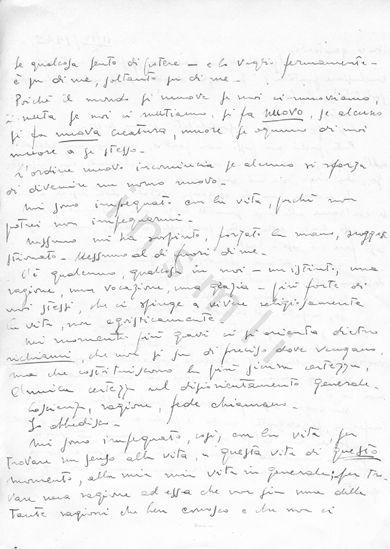 Se qualcosa sento di potere – e lo voglio fermamente –
è su di me, soltanto su di me –
Poiché il mondo si muove se noi ci muoviamo,
si muta se noi ci mutiamo, si fa nuovo, se alcuno
si fa nuova creatura, muore se ognuno di noi
muore a se stesso.
L'ordine nuovo incomincia se alcuno si sforza
di divenire un uomo nuovo –
Mi sono impegnato con la vita, perché non
potrei non impegnarmi –
Nessuno mi ha sospinto, forzato la mano, sugge-
stionato – Nessuno al di fuori di me –
C'è qualcuno, qualcosa in noi – un istinto, una
ragione, una vocazione, una grazia – più forte di
noi stessi, che ci spinge a vivere religiosamente
la vita, non egoisticamente.
Nei momenti più gravi ci si orienta dietro
richiami, che non si sa di preciso dove vengano,
ma che costituiscono la più sicura certezza,
l'unica certezza nel disorientamento generale –
Coscienza, ragione, fede chiamano –
Io obbedisco –
Mi sono impegnato, così, con la vita, per
trovare un senso alla vita, a questa vita di questo
momento, alla mia vita in generale; per tro-
vare una ragione ad essa che non sia una delle
tante ragioni che ben conosco e che non ci